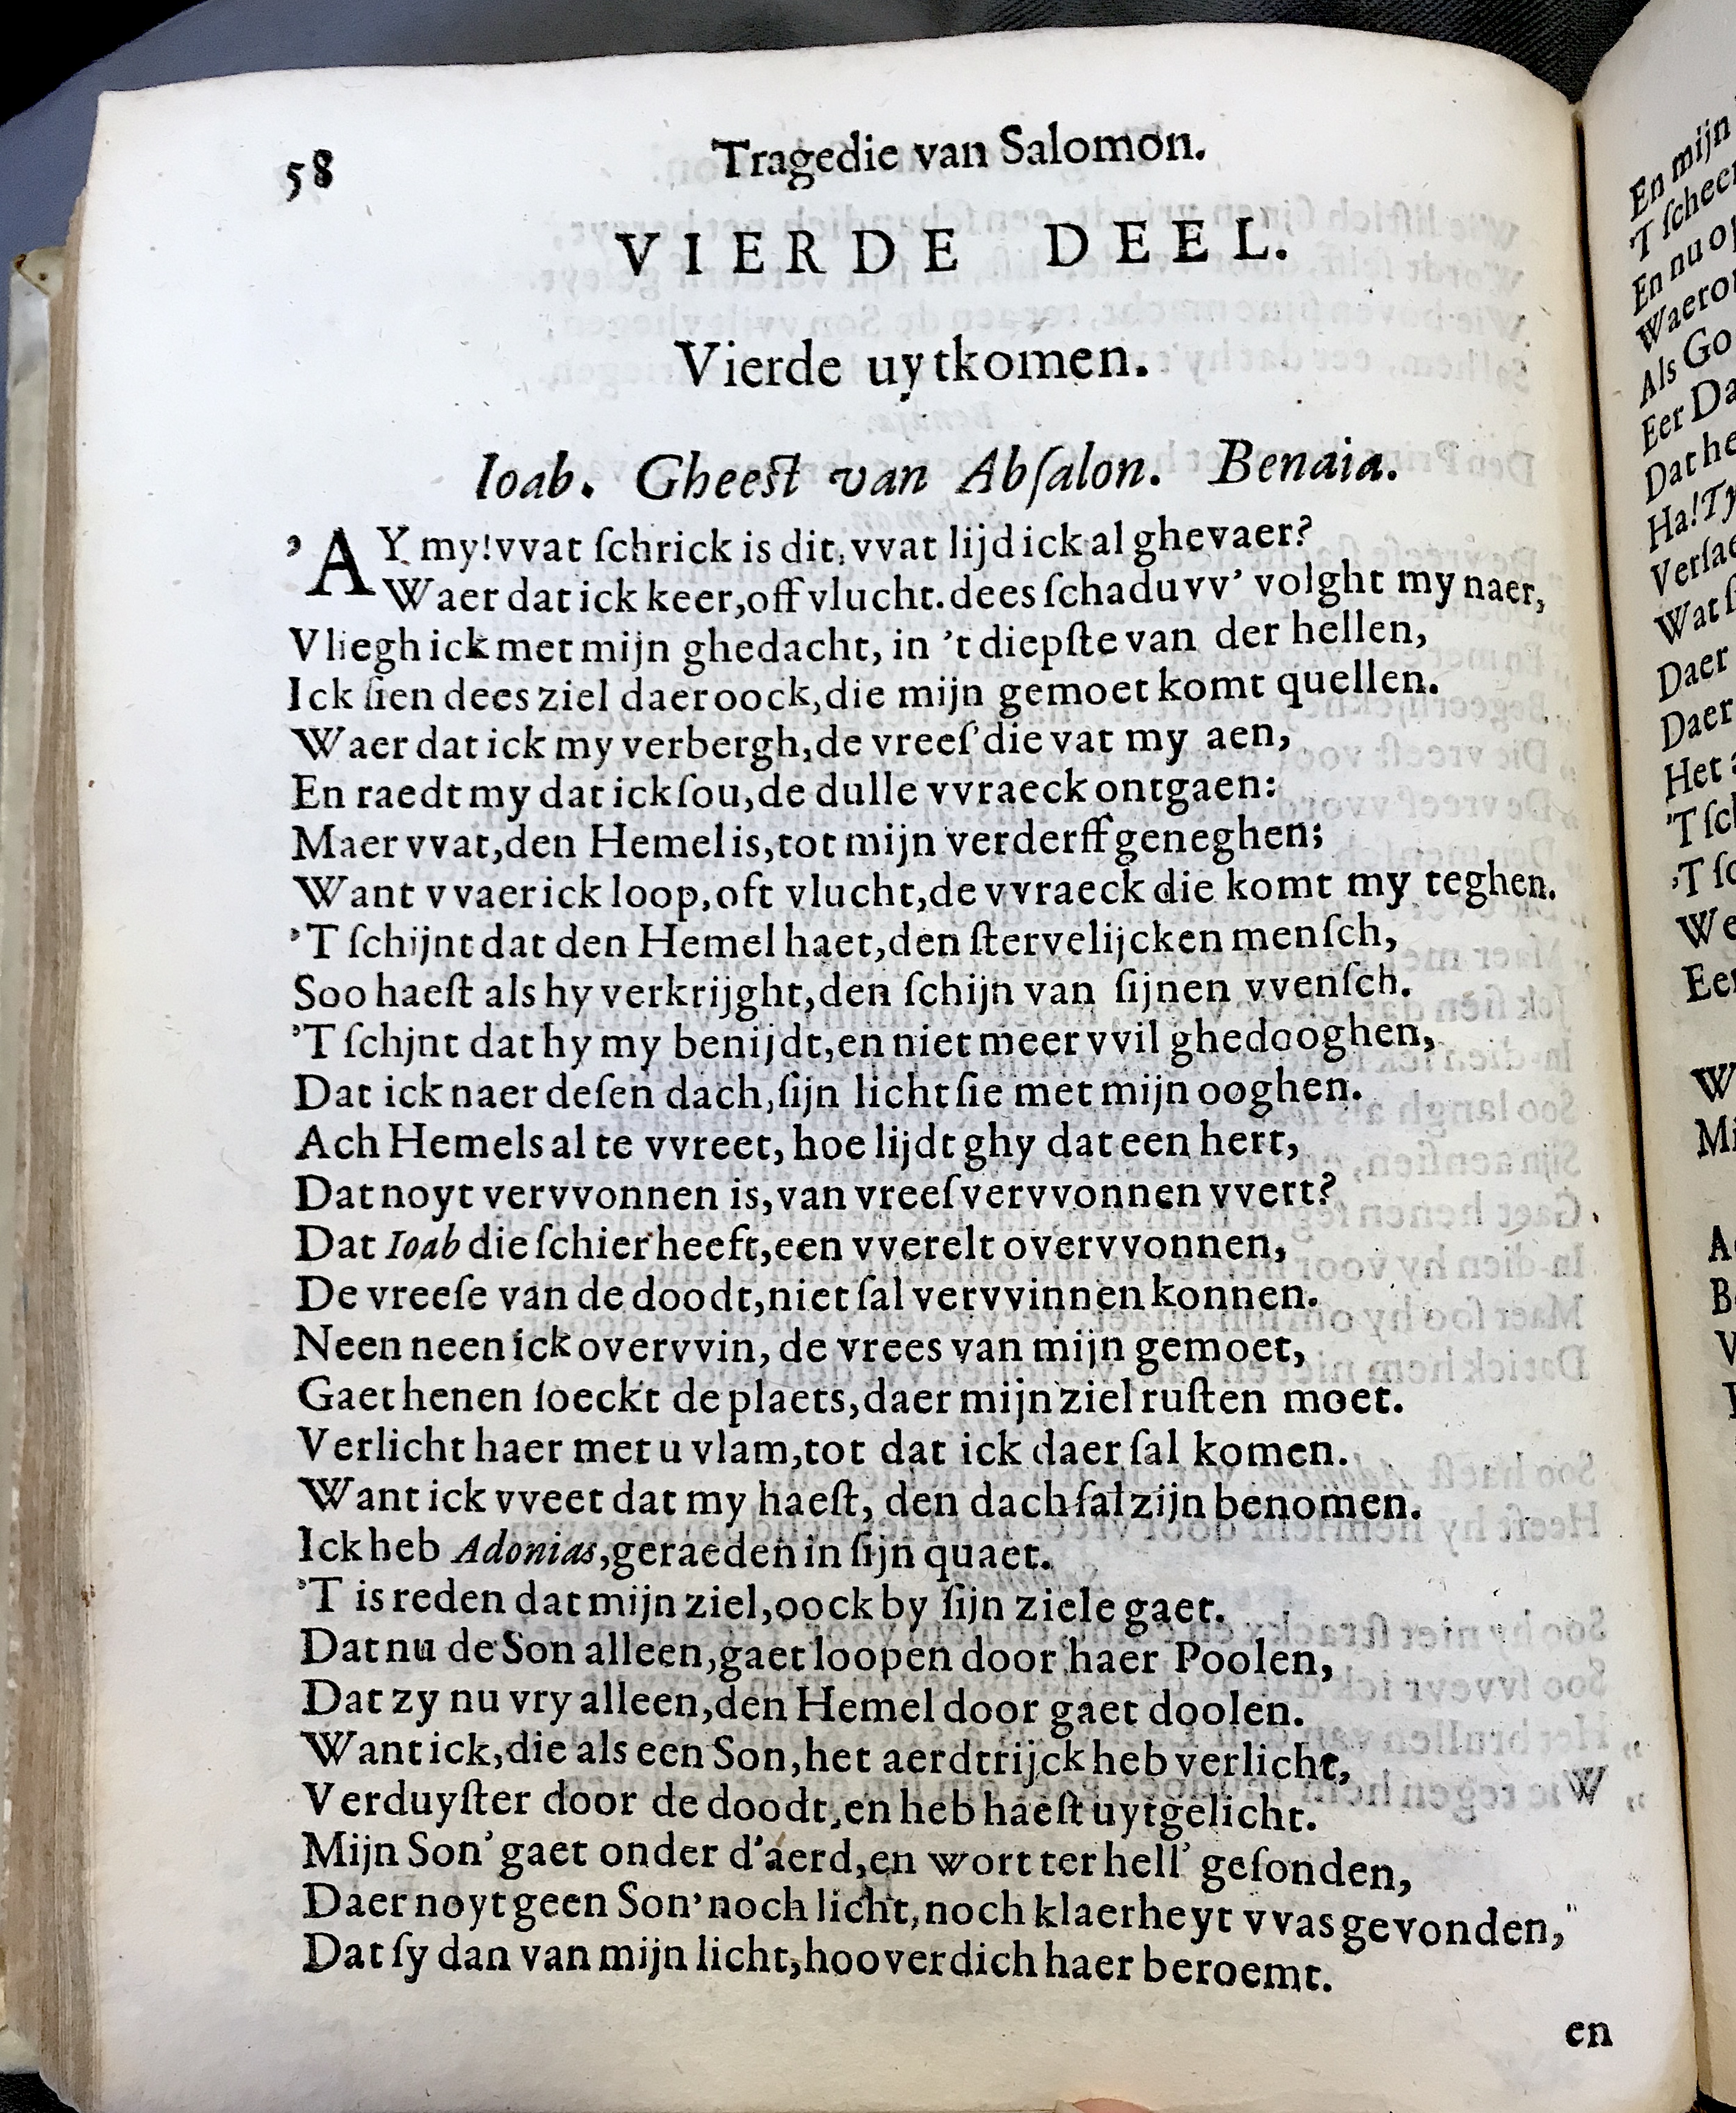 58
Tragedie van Salomon.
VIERDE DEEL.
Vierde uytkomen.
Ioab. Gheest van Abſalon. Benaia.
'AY my! vvat ſchrick is dit, vvat lijd ick al ghevaer?
Waer dat ick keer, off vlucht. dees ſchaduvv' volght my naer,
Vliegh ick met mijn ghedacht, in 't diepſte van der hellen,
Ick ſien dees ziel daer oock, die mijn gemoet komt quellen.
Waer dat ick my verbergh, de vreeſ' die vat my aen,
En raedt my dat ick ſou, de dulle vvraeck ontgaen:
Maer vvat, den Hemel is, tot mijn verderff geneghen;
Want vvaer ick loop, oft vlucht, de vvraeck die komt my teghen.
'T ſchijnt dat den Hemel haet, den ſtervelijcken menſch,
Soo haeſt als hy verkrijght, den ſchijn van ſijnen vvenſch.
'T ſchjnt dat hy my benijdt, en niet meer vvil ghedooghen,
Dat ick naer deſen dach, ſijn licht ſie met mijn ooghen.
Ach Hemels al te vvreet, hoe lijdt ghy dat een hert,
Dat noyt vervvonnen is, van vreeſ vervvonnen vvert?
Dat Ioab die ſchier heeft, een vverelt overvvonnen,
De vreeſe van de doodt, niet ſal vervvinnen konnen.
Neen neen ick overvvin, de vrees van mijn gemoet,
Gaet henen ſoeckt de plaets, daer mijn ziel ruſten moet.
Verlicht haer met u vlam, tot dat ick daer ſal komen.
Want ick vveet dat my haeſt, den dach ſal zijn benomen.
Ick heb Adonias, geraeden in ſijn quaet.
'T is reden dat mijn ziel, oock by ſijn ziele gaet.
Dat nu de Son alleen, gaet loopen door haer Poolen,
Dat zy nu vry alleen, den Hemel door gaet doolen.
Want ick, die als een Son, het aerdtrijck heb verlicht,
Verduyſter door de doodt, en heb haeſt uytgelicht.
Mijn Son' gaet onder d'aerd, en wort ter hell' geſonden,
Daer noyt geen Son' noch licht, noch klaerheyt vvas gevonden,
Dat ſy dan van mijn licht, hooverdich haer beroemt.
en
En mijn
'T ſchee
En nu o
Waero
Als Go
Eer Da
Dat he
Ha! Ty
Verſae
Wat ſ
Daer
Daer
Het
'T ſc
'T ſc
We
Ee
W
Mi
A
B
V